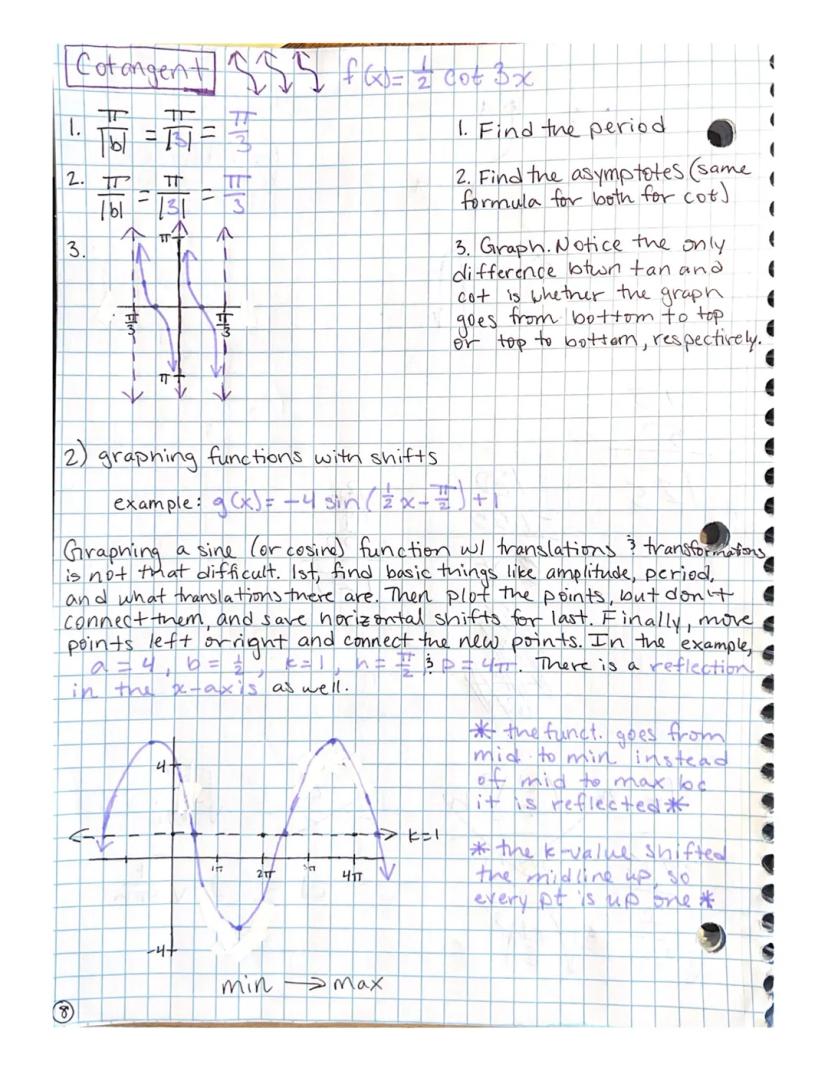 Cotangent f(x) = 1/2 cot 3x
1. π/|b| = π/|3| = π/3
1. Find the period
2. π/|b| = π/|3| = π/3
2. Find the asymptotes (same
formula for both for cot)
3.
π
π/3
π/3
π
3. Graph. Notice the only
difference btwn tan and
cot is whether the graph
goes from bottom to top
or top to bottom, respectively.
2) graphing functions with shifts
example: g(x) = -4 sin (1/2 x - π/2) + 1
Graphing a sine (or cosine) function w/ translations & transformations
is not that difficult. 1st, find basic things like amplitude, period,
and what translations there are. Then plot the points, but don't
connect them, and save horizontal shifts for last. Finally, move
points left or right and connect the new points. In the example,
a = 4, b = 1/2, k = 1, h = π/2 & p = 4π. There is a reflection
in the x-axis as well.
* the funct. goes from
mid to min instead
of mid to max bc
it is reflected *
4
k=1
1π 2π 3π 4π
-4
* the k-value shifted
the midline up, so
every pt is up one *
min → max
8